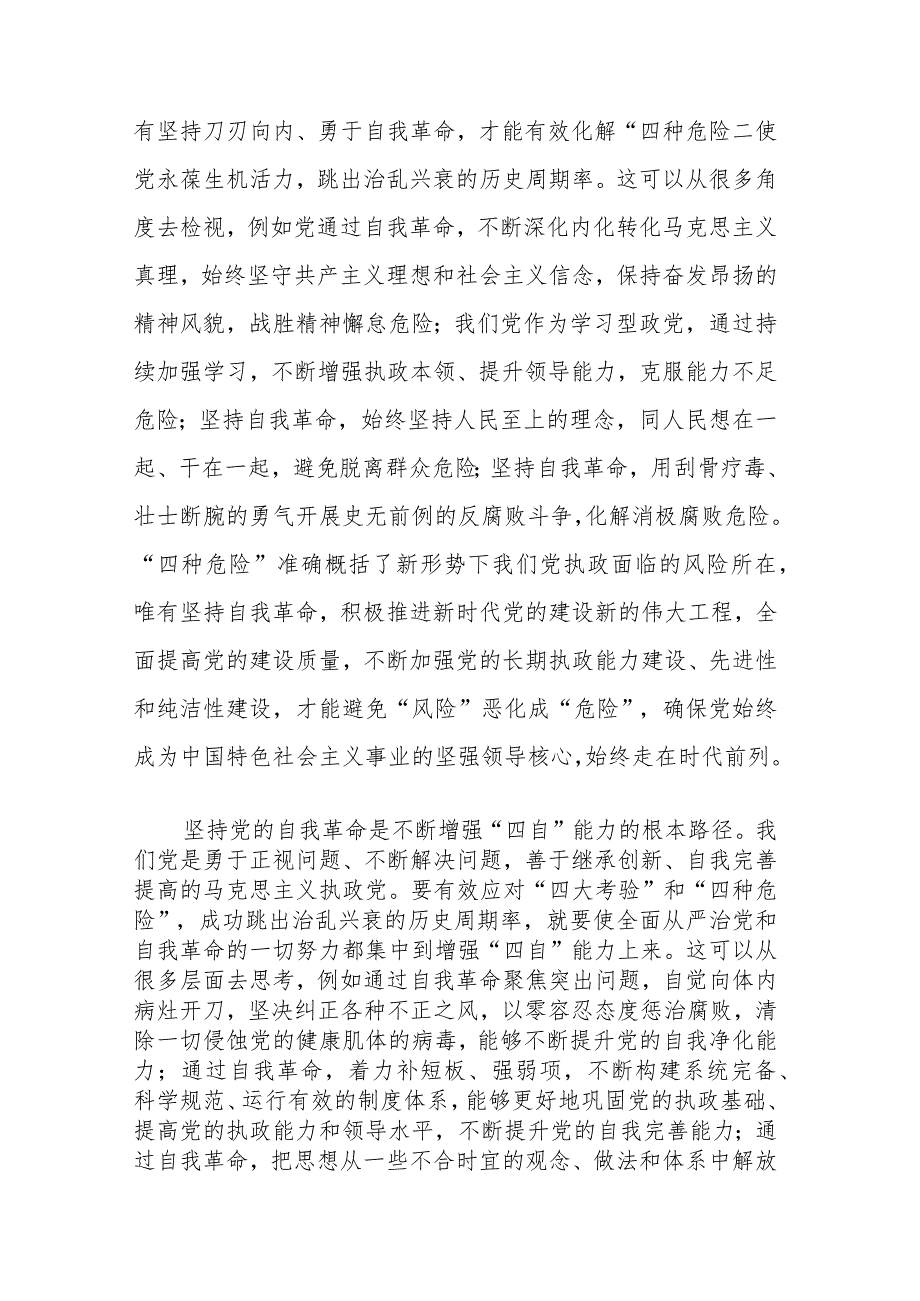 有坚持刀刃向内、勇于自我革命，才能有效化解“四种危险二使
党永葆生机活力，跳出治乱兴衰的历史周期率。这可以从很多角
度去检视，例如党通过自我革命，不断深化内化转化马克思主义
真理，始终坚守共产主义理想和社会主义信念，保持奋发昂扬的
精神风貌，战胜精神懈怠危险；我们党作为学习型政党，通过持
续加强学习，不断增强执政本领、提升领导能力，克服能力不足
危险；坚持自我革命，始终坚持人民至上的理念，同人民想在一
起、干在一起，避免脱离群众危险；坚持自我革命，用刮骨疗毒、
壮士断腕的勇气开展史无前例的反腐败斗争，化解消极腐败危险。
“四种危险”准确概括了新形势下我们党执政面临的风险所在，
唯有坚持自我革命，积极推进新时代党的建设新的伟大工程，全
面提高党的建设质量，不断加强党的长期执政能力建设、先进性
和纯洁性建设，才能避免“风险”恶化成“危险”，确保党始终
成为中国特色社会主义事业的坚强领导核心，始终走在时代前列。
坚持党的自我革命是不断增强“四自”能力的根本路径。我
们党是勇于正视问题、不断解决问题，善于继承创新、自我完善
提高的马克思主义执政党。要有效应对“四大考验”和“四种危
险”，成功跳出治乱兴衰的历史周期率，就要使全面从严治党和
自我革命的一切努力都集中到增强“四自”能力上来。这可以从
很多层面去思考，例如通过自我革命聚焦突出问题，自觉向体内
病灶开刀，坚决纠正各种不正之风，以零容忍态度惩治腐败，清
除一切侵蚀党的健康肌体的病毒，能够不断提升党的自我净化能
力；通过自我革命，着力补短板、强弱项，不断构建系统完备、
科学规范、运行有效的制度体系，能够更好地巩固党的执政基础、
提高党的执政能力和领导水平，不断提升党的自我完善能力；通
过自我革命，把思想从一些不合时宜的观念、做法和体系中解放